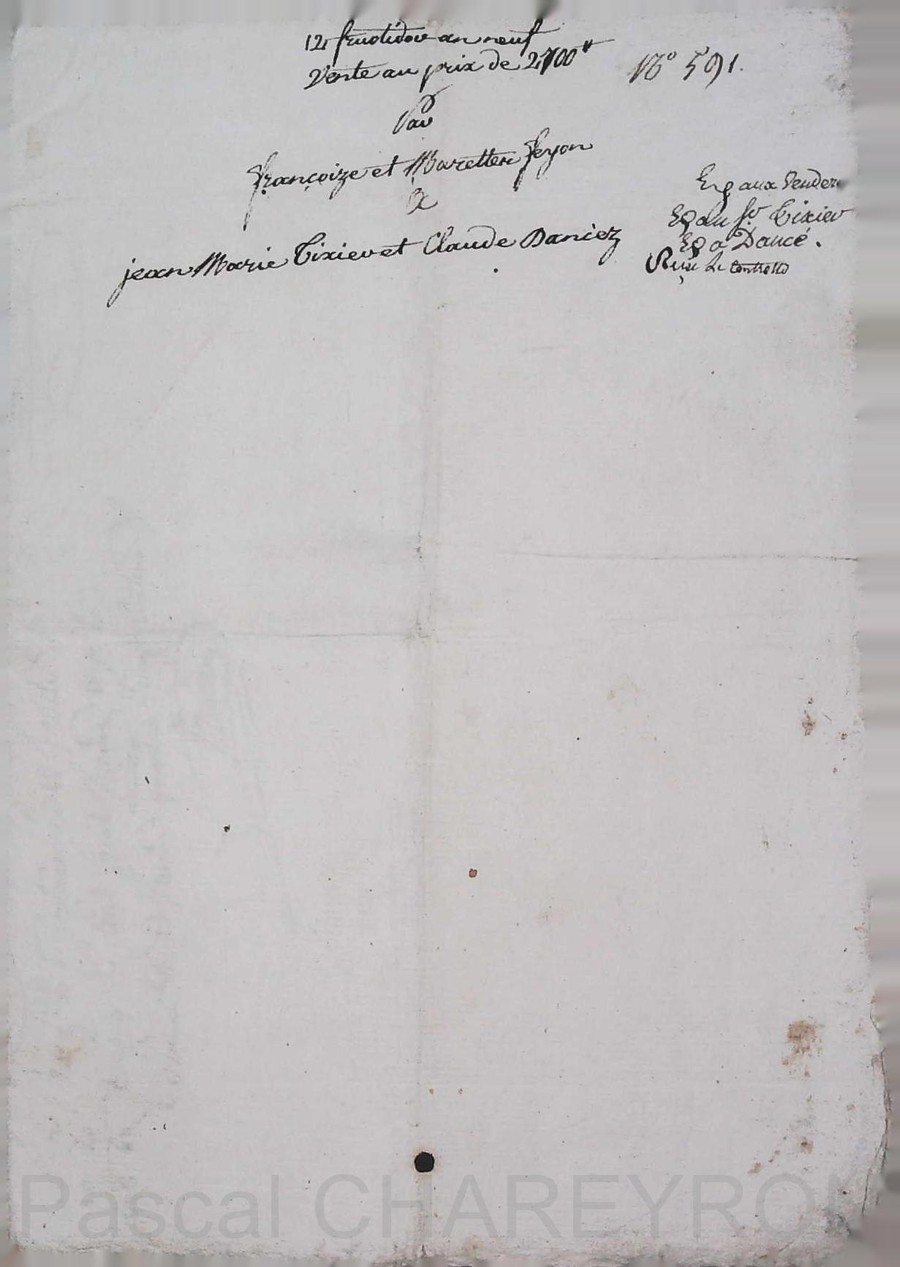 12 fructidor an neuf
Vente au prix de 2700#
N° 591.
Par
Françoize et Mariette Feyon
a
jean Marie Tixier et Claude Daniez
Exp aux Vendeu
Exp au Sr Tixier
Exp a Dancé.
le Controlle
Pascal CHAREYRON